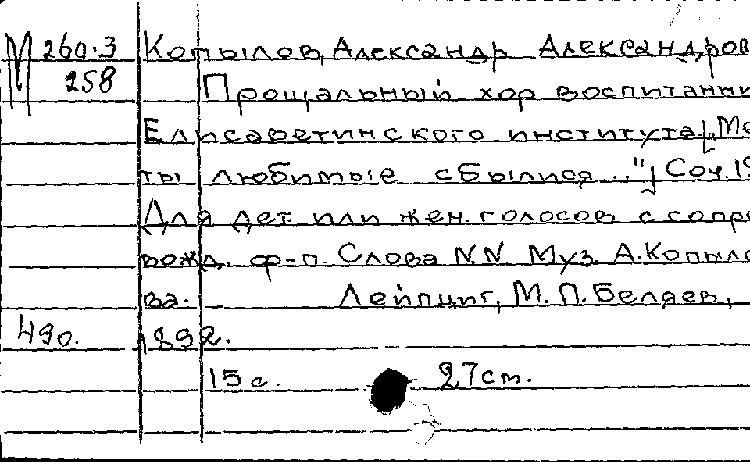 М 260.3 Копылов, Александр Александров
258 Прощальный хор воспитанни
Елисаветинского института [„Ме
ты любимые сбылися..."] Соч. 19
Для дет. или жен. голосов с сопро
вожд. ф-п. Слова N.N. Муз. А. Копыло
ва. Лейпциг, М. П. Беляев,
490. 1892.
15 с. 27 см.